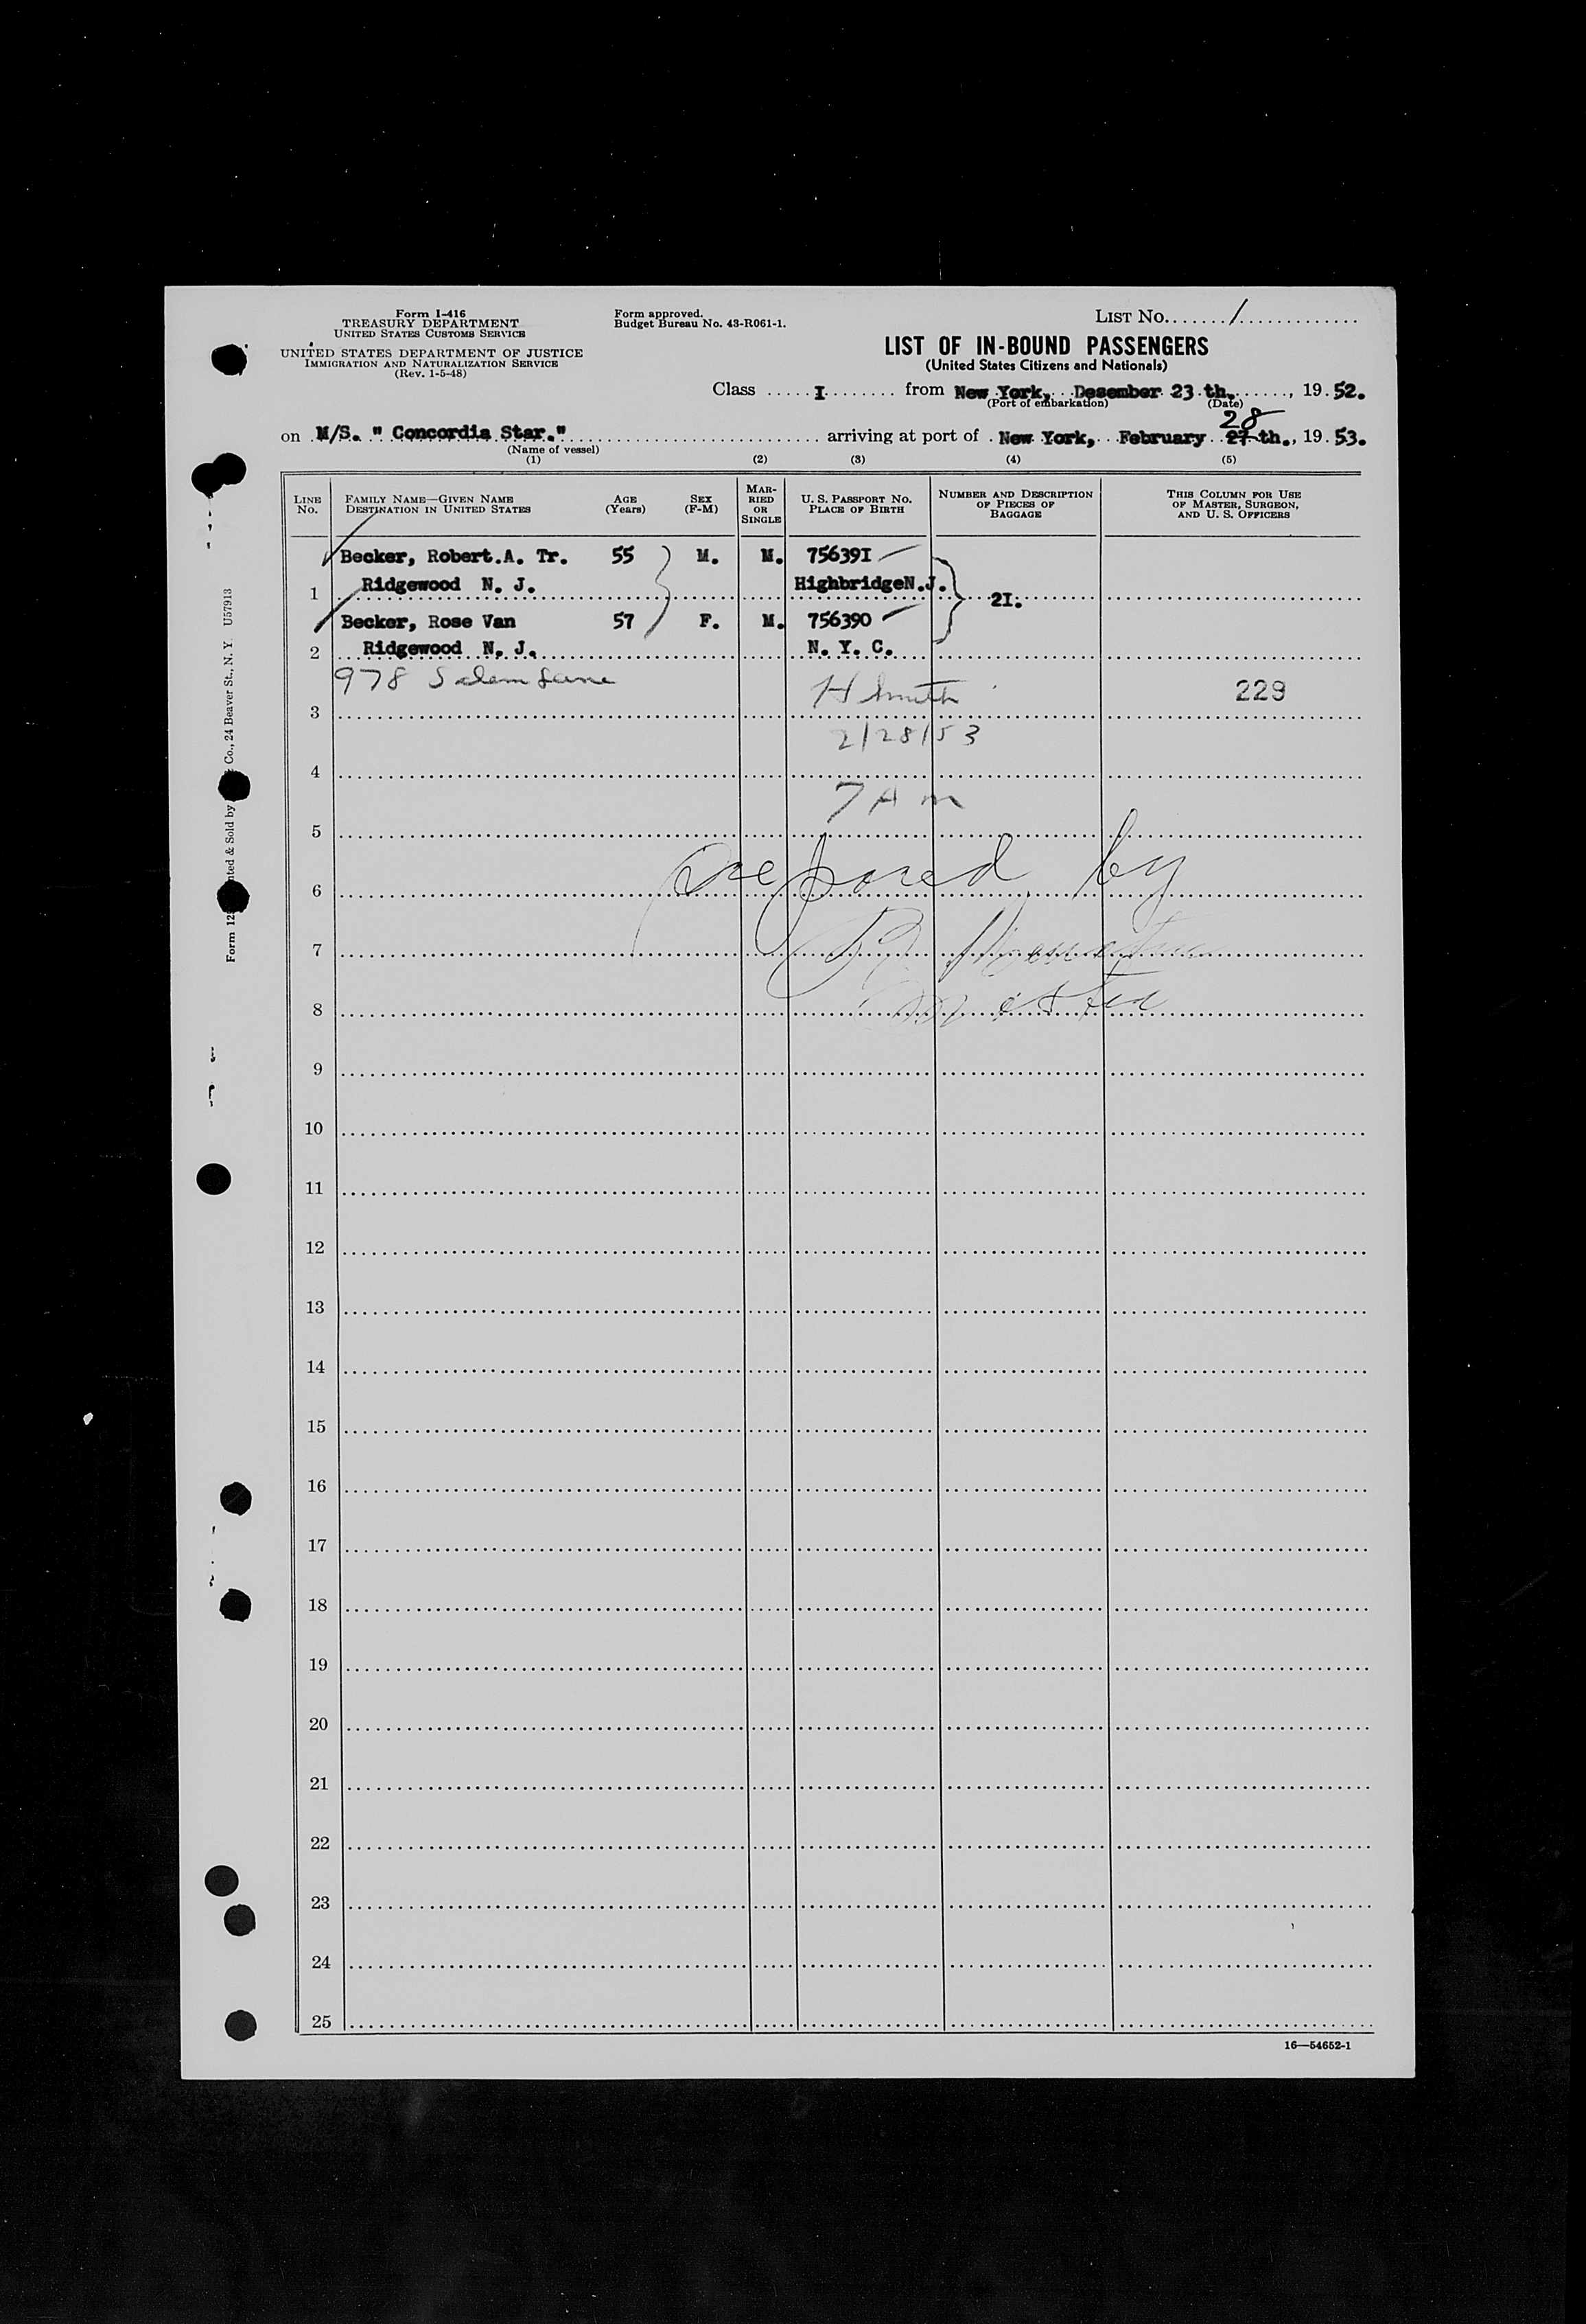 Form I-416
TREASURY DEPARTMENT
UNITED STATES CUSTOMS SERVICE
UNITED STATES DEPARTMENT OF JUSTICE
IMMIGRATION AND NATURALIZATION SERVICE
(Rev. 1-5-48)
Form approved.
Budget Bureau No. 43-R061-1.
LIST NO. 1
LIST OF IN-BOUND PASSENGERS
(United States Citizens and Nationals)
Class I from New York, Desember 23 th., 19 52.
(Port of embarkation) (Date)
28
on M/S. " Concordia Star." arriving at port of New York, February 27 th., 19 53.
(Name of vessel)
(1) (2) (3) (4) (5)
LINE No. FAMILY NAME—GIVEN NAME DESTINATION IN UNITED STATES AGE (Years) SEX (F-M) MARRIED OR SINGLE U. S. PASSPORT NO. PLACE OF BIRTH NUMBER AND DESCRIPTION OF PIECES OF BAGGAGE THIS COLUMN FOR USE OF MASTER, SURGEON, AND U. S. OFFICERS
Becker, Robert.A. Tr. 55 M. M. 756391
1 Ridgewood N. J. HighbridgeN.J. 2I.
Becker, Rose Van 57 F. M. 756390
2 Ridgewood N. J. N. Y. C.
978 Salem Lane H Smith 229
3
2/28/53
4
7 A m
5
prepared by
6
7
8 master
9
10
11
12
13
14
15
16
17
18
19
20
21
22
23
24
25
16—54652-1
Form 12 nted & Sold by Co., 24 Beaver St., N. Y. U57913